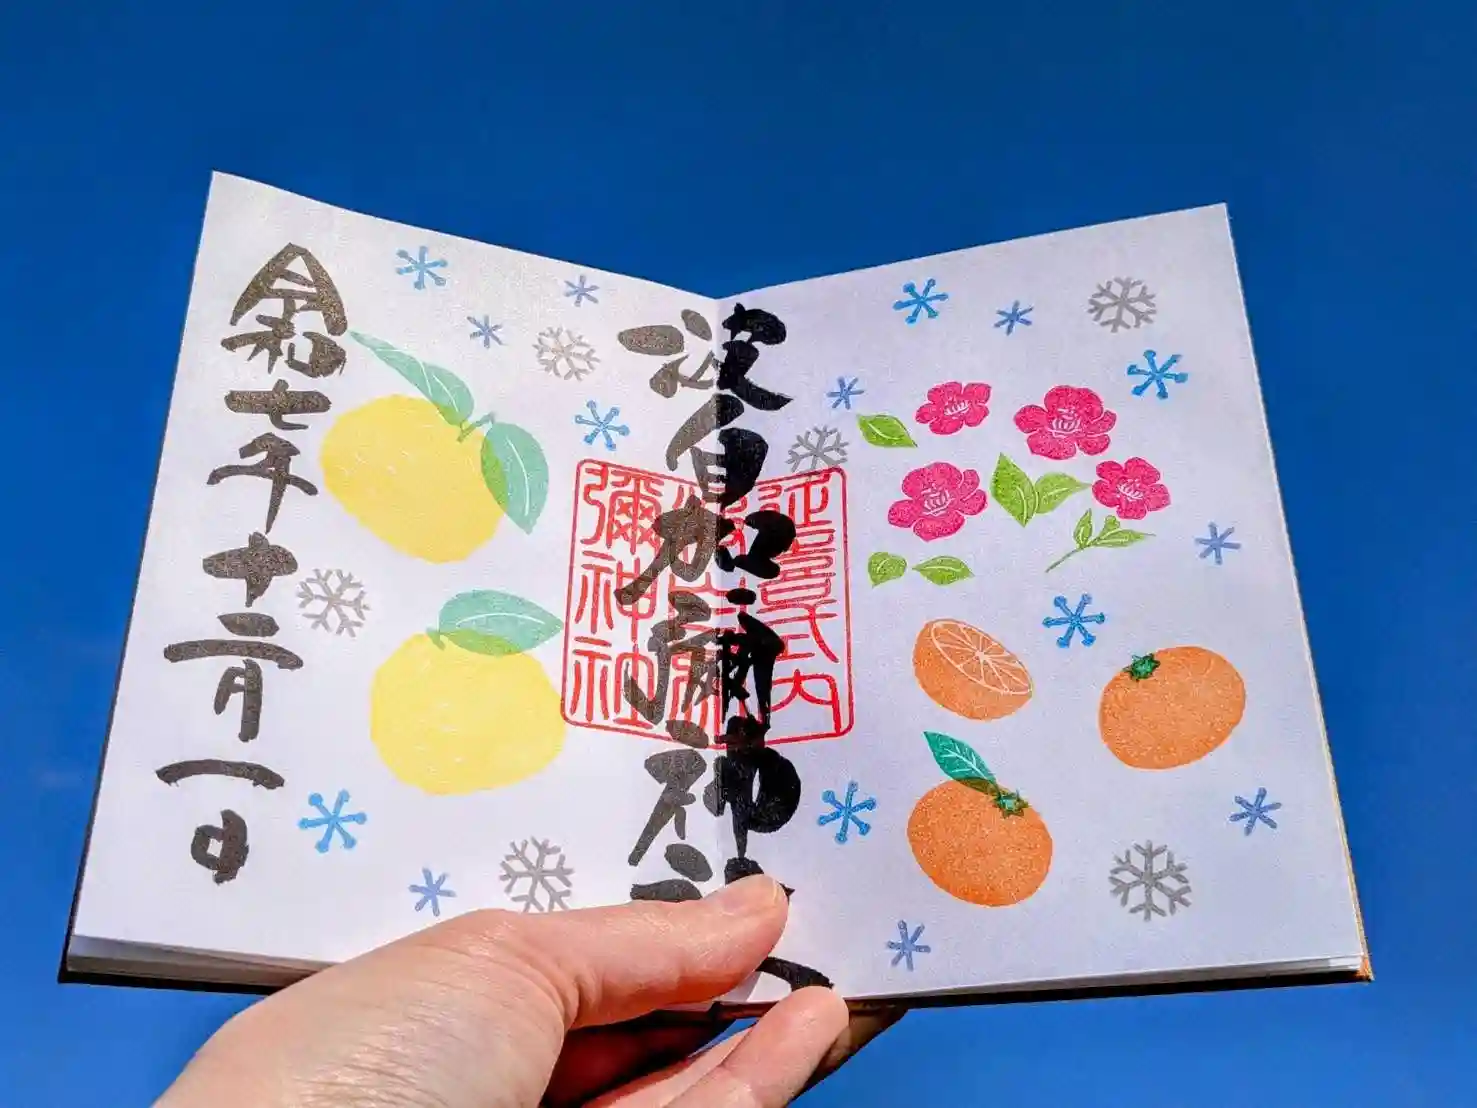 波自加彌神社
延喜式内
彌神社
令和七年十二月一日